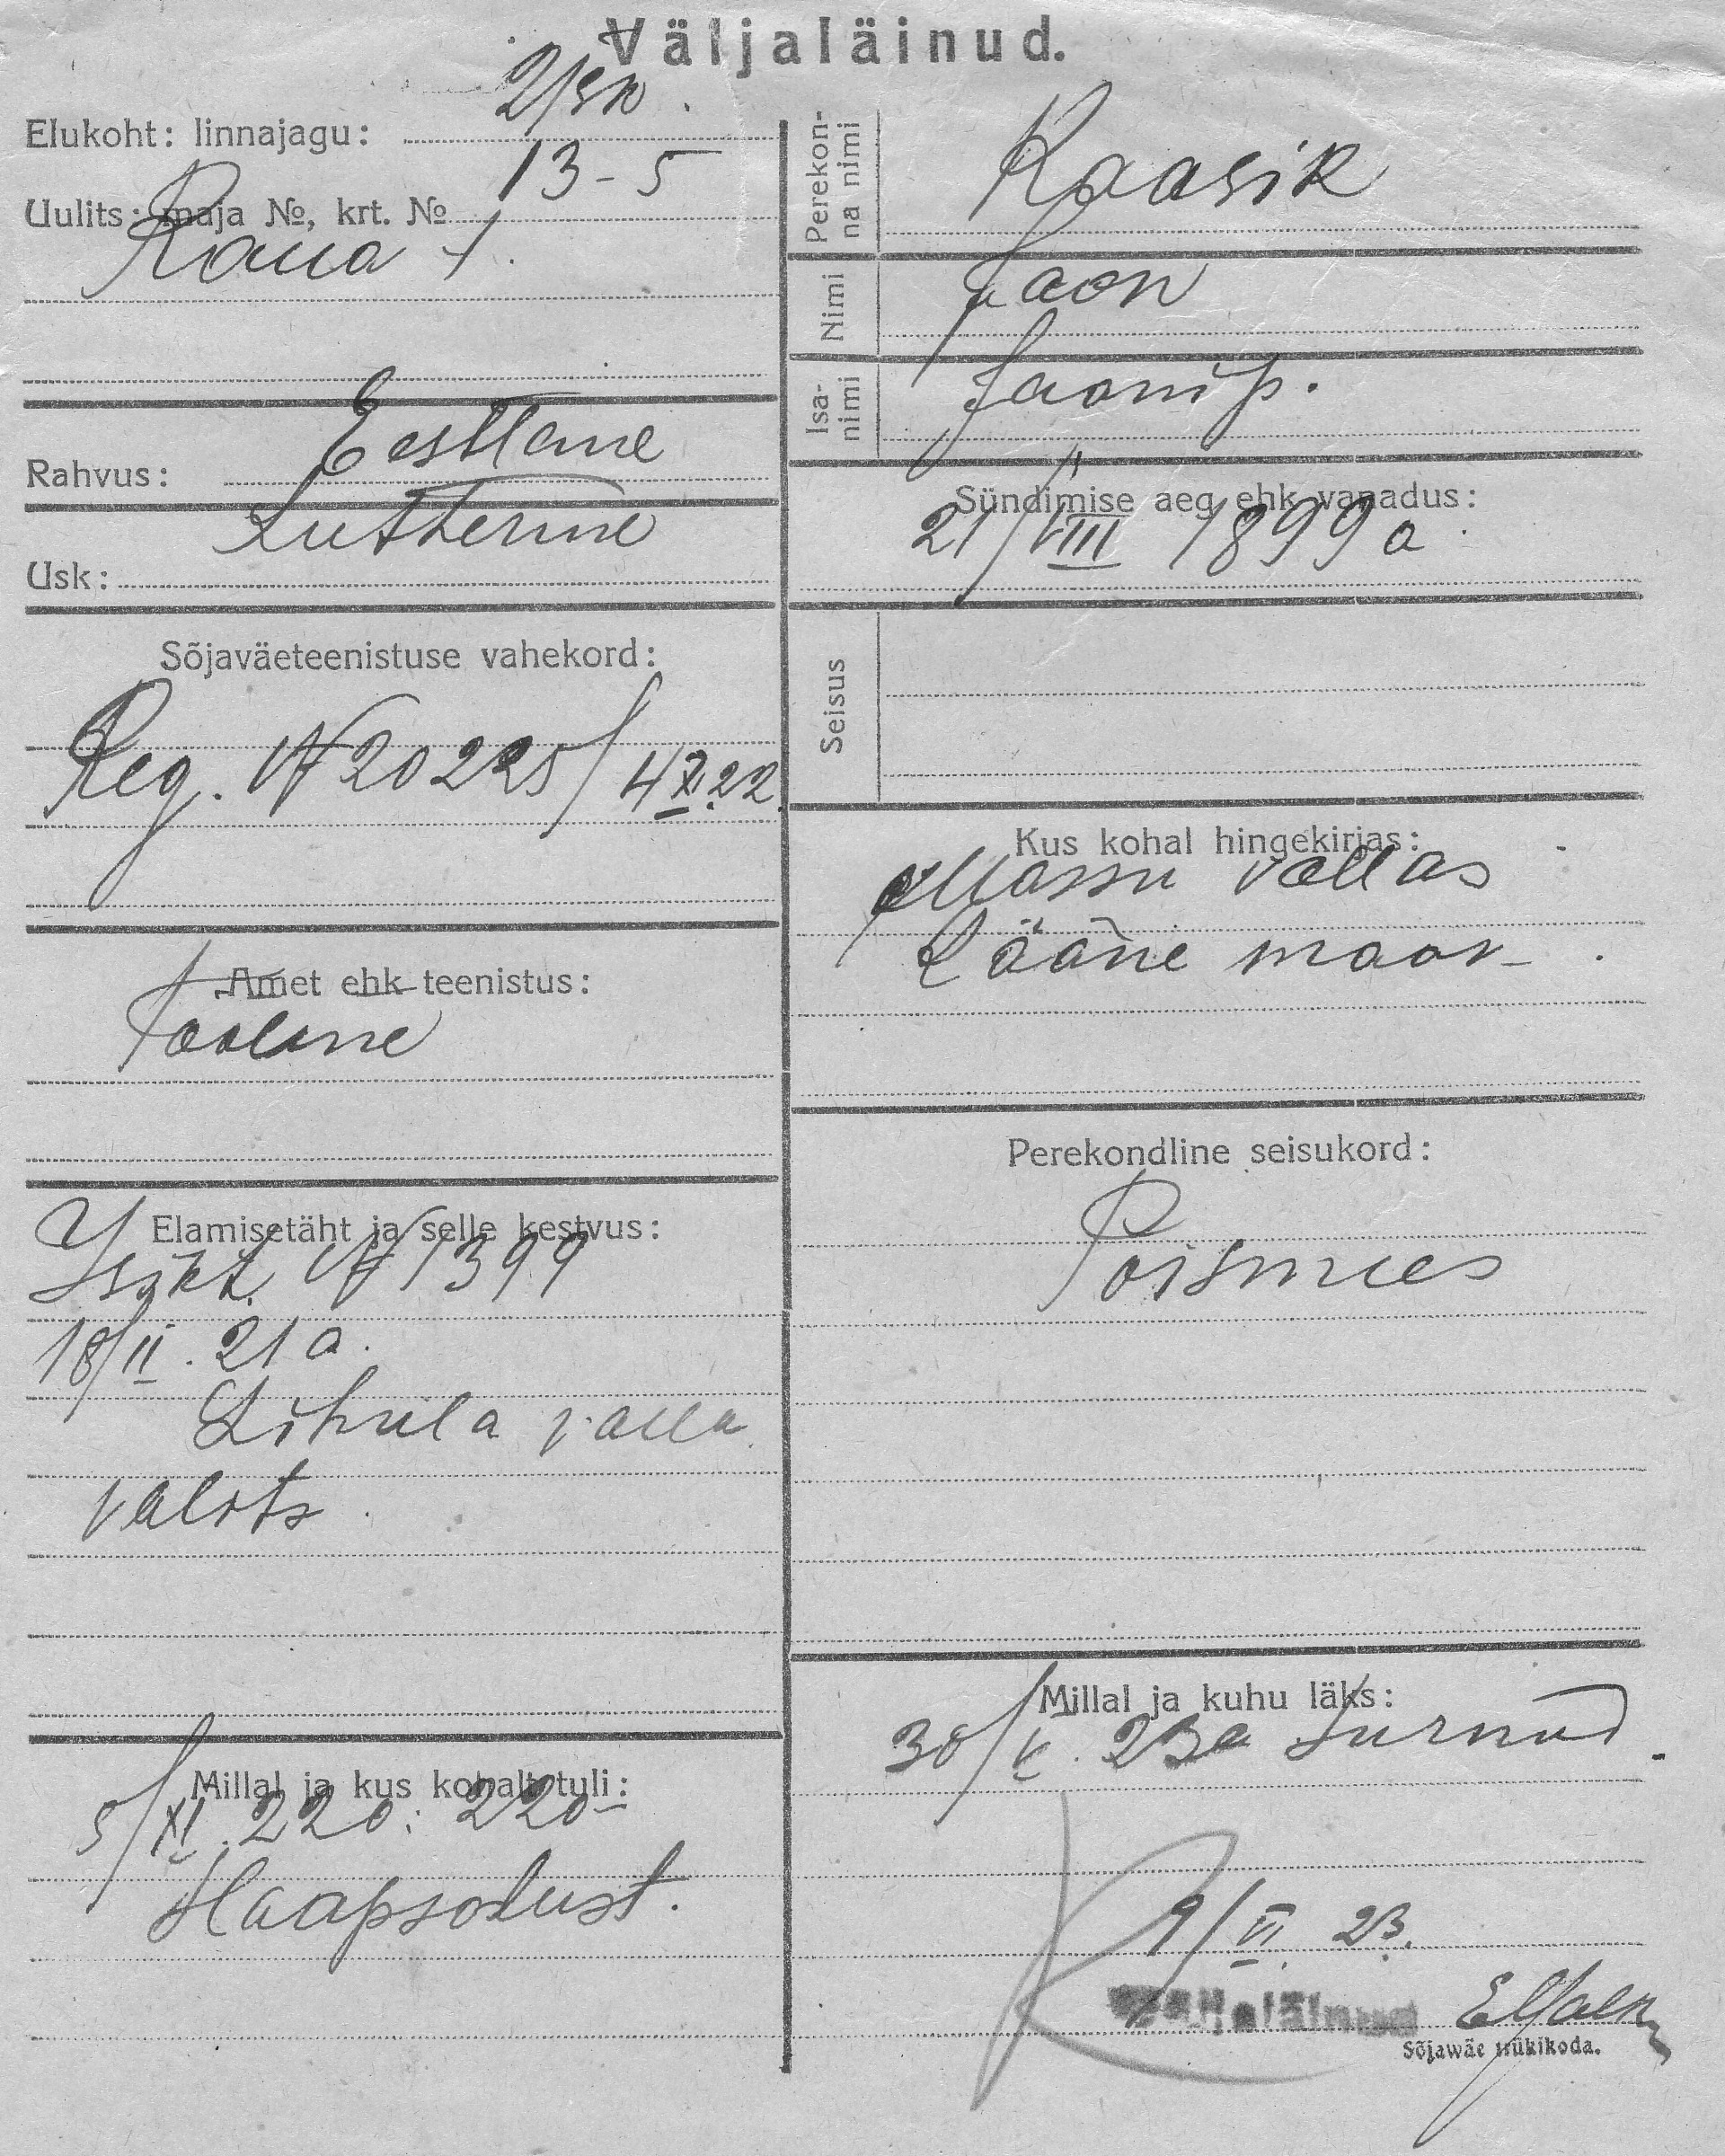 Väljaläinud.
Elukoht: linnajagu: 2/jsk.
Uulits: maja №, krt. № 13-5
Raua t.
Rahvus: Eestlane
Usk: Lutterine
Sõjaväeteenistuse vahekord:
Reg. № 20225/4 XI. 22.
Amet ehk teenistus:
Tööline
Elamisetäht ja selle kestvus:
Isikt. № 1399
18/II. 21 a.
Lihula valla
valits.
Millal ja kus kohalt tuli:
5/XI. 22a.
Haapsalust.
Perekonna nimi Kaasik
Nimi Jaan
Isanimi Jaani p.
Sündimise aeg ehk vanadus:
21/VIII 1899 a.
Seisus
Kus kohal hingekirjas:
Massu vallas
Lääne maak.
Perekondline seisukord:
Poismees
Millal ja kuhu läks:
30/V. 23a surnud.
9/VI. 23.
Väljaläinud
Sõjawäe trükikoda.